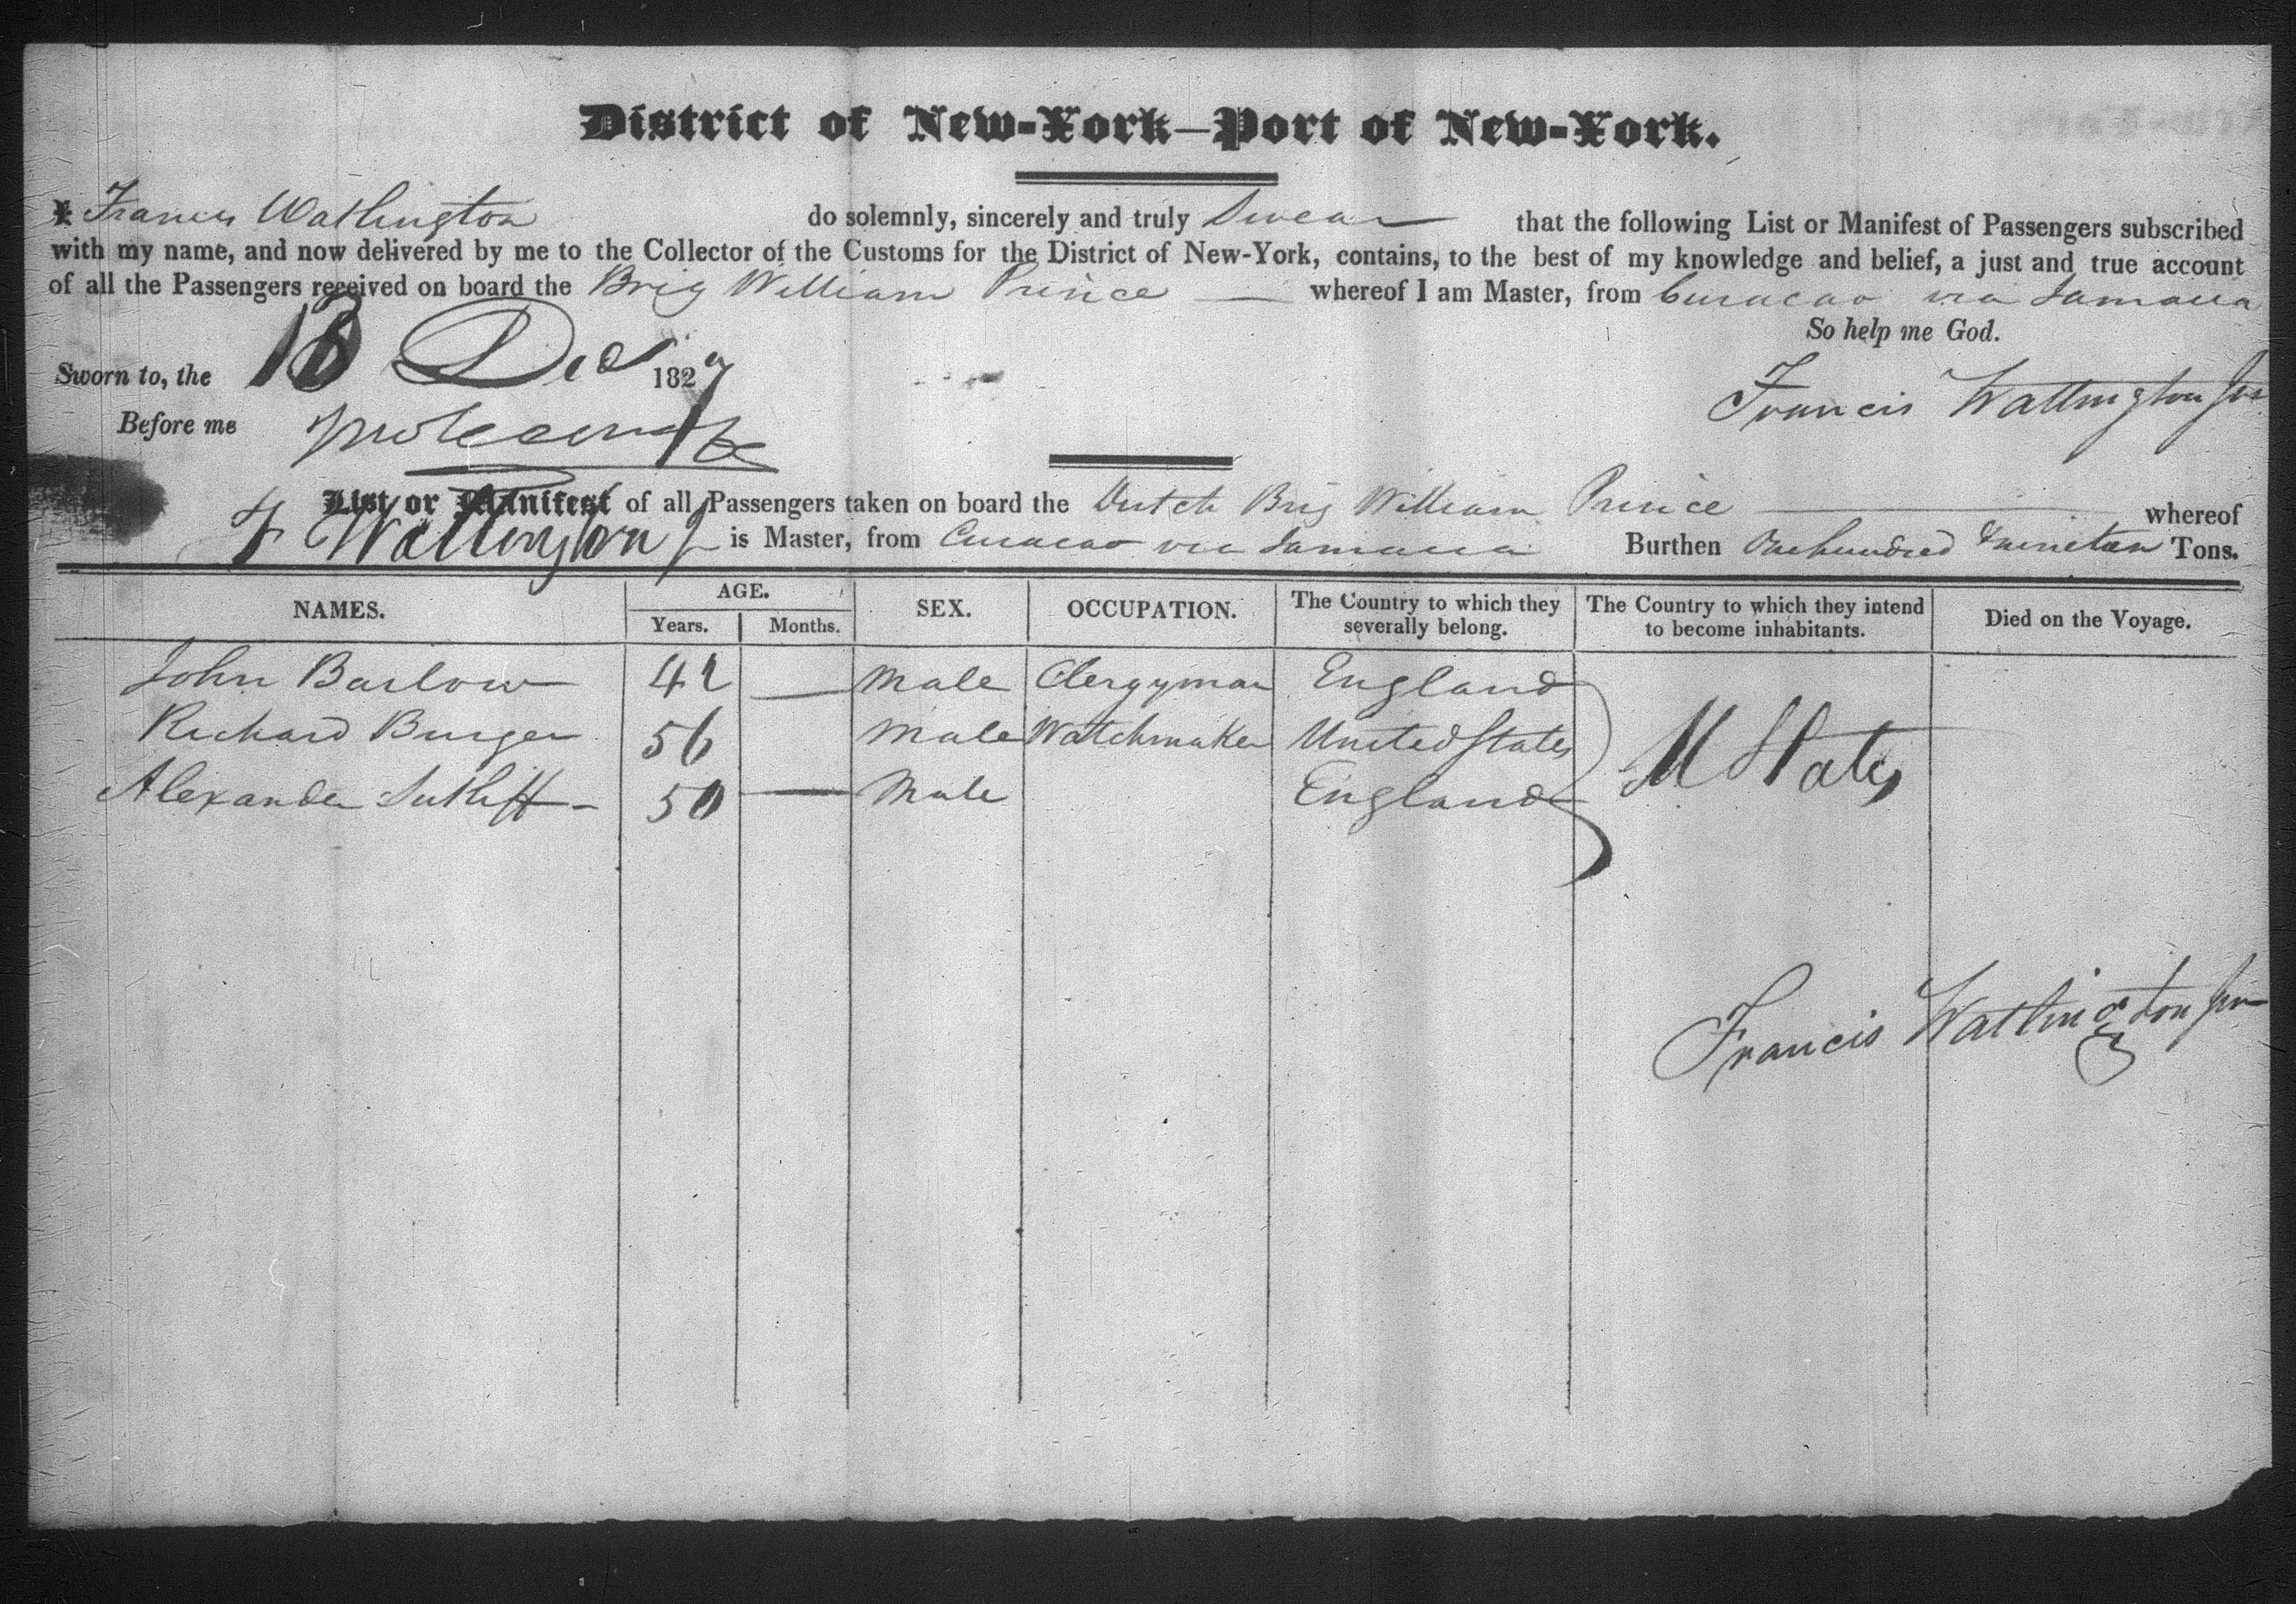 District of New-York—Port of New-York.
I Francis Watlington do solemnly, sincerely and truly Swear that the following List or Manifest of Passengers subscribed
with my name, and now delivered by me to the Collector of the Customs for the District of New-York, contains, to the best of my knowledge and belief, a just and true account
of all the Passengers received on board the Brig William Prince — whereof I am Master, from Curacao via Jamaica
So help me God.
Sworn to, the 18 Dec 1829
Francis Watlington Jun
Before me
List or Manifest of all Passengers taken on board the Dutch Brig William Prince — whereof
F Watlington J is Master, from Curacao via Jamaica Burthen One hundred & nineteen Tons.
NAMES. AGE. Years. Months. SEX. OCCUPATION. The Country to which they severally belong. The Country to which they intend to become inhabitants. Died on the Voyage.
John Barlow 42 — Male Clergyman England
Richard Burger 56 Male Watchmaker United States U States
Alexander Sutliff - 50 — Male England
Francis Watlington Jun